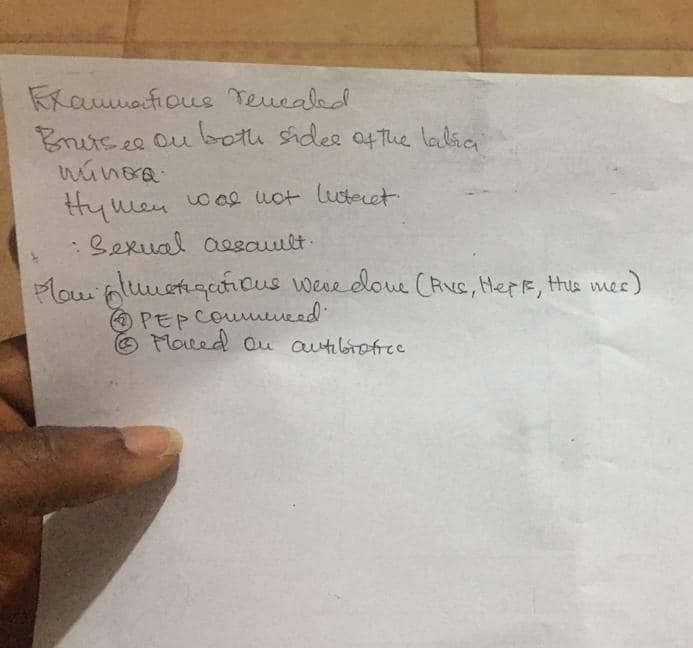 Examinations revealed
Bruises on both sides of the labia
minora.
Hymen was not intact.
: Sexual assault.
Plan: ① Investigations were done (RVS, Hep B,
② PEP commenced.
③ Placed on antibiotics